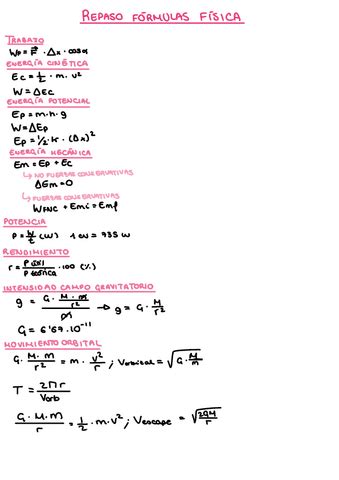 REPASO FÓRMULAS FÍSICA
TRABAJO
W_F = F⃗ · Δx · cosα
ENERGÍA CINÉTICA
Ec = 1/2 · m · v²
W = ΔEc
ENERGÍA POTENCIAL
Ep = m·h·g
W = ΔEp
Ep = 1/2 · K · (Δx)²
ENERGÍA MECÁNICA
Em = Ep + Ec
↳ NO FUERZAS CONSERVATIVAS
ΔEm = 0
↳ FUERZAS CONSERVATIVAS
W_FNC + Emi = Emf
POTENCIA
P = W/t (W) 1 CV = 735 W
RENDIMIENTO
r = P útil / P teórica · 100 (%)
INTENSIDAD CAMPO GRAVITATORIO
g = (G · M · m / r²) / m → g = G · M/r²
G = 6'67·10⁻¹¹
MOVIMIENTO ORBITAL
G · M·m/r² = m · v²/r ; Vorbital = √(G · M/r)
T = 2πr/Vorb
G·M·m/r = 1/2 · m·v² ; Vescape = √(2GM/r)